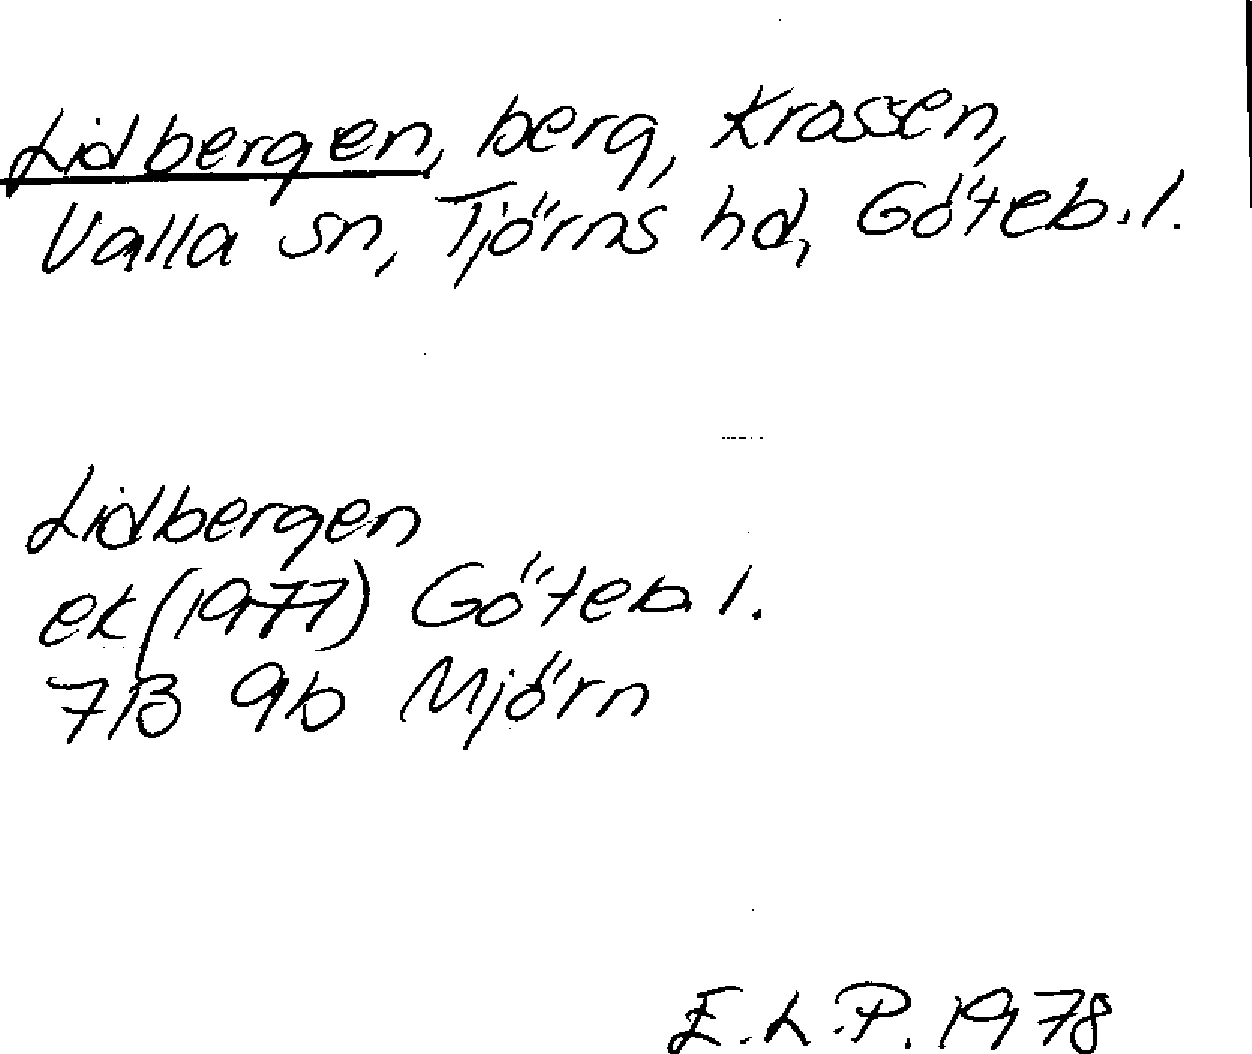 Lidbergen, berg, Krossen,
Valla sn, Tjörns hd, Göteb.l.
Lidbergen
ek (1977) Göteb l.
7B 9b Mjörn
E.L.P. 1978